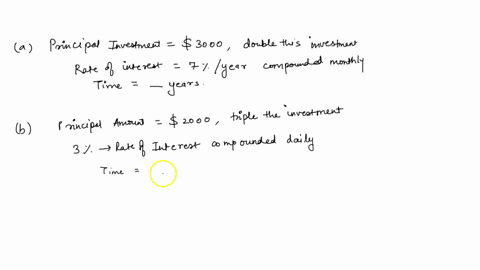 (a) Principal Investment = $3000, double this investment
Rate of interest = 7%/year compounded monthly
Time = __ years.
(b) Principal Amount = $2000, triple the investment
3% → Rate of Interest compounded daily
Time =